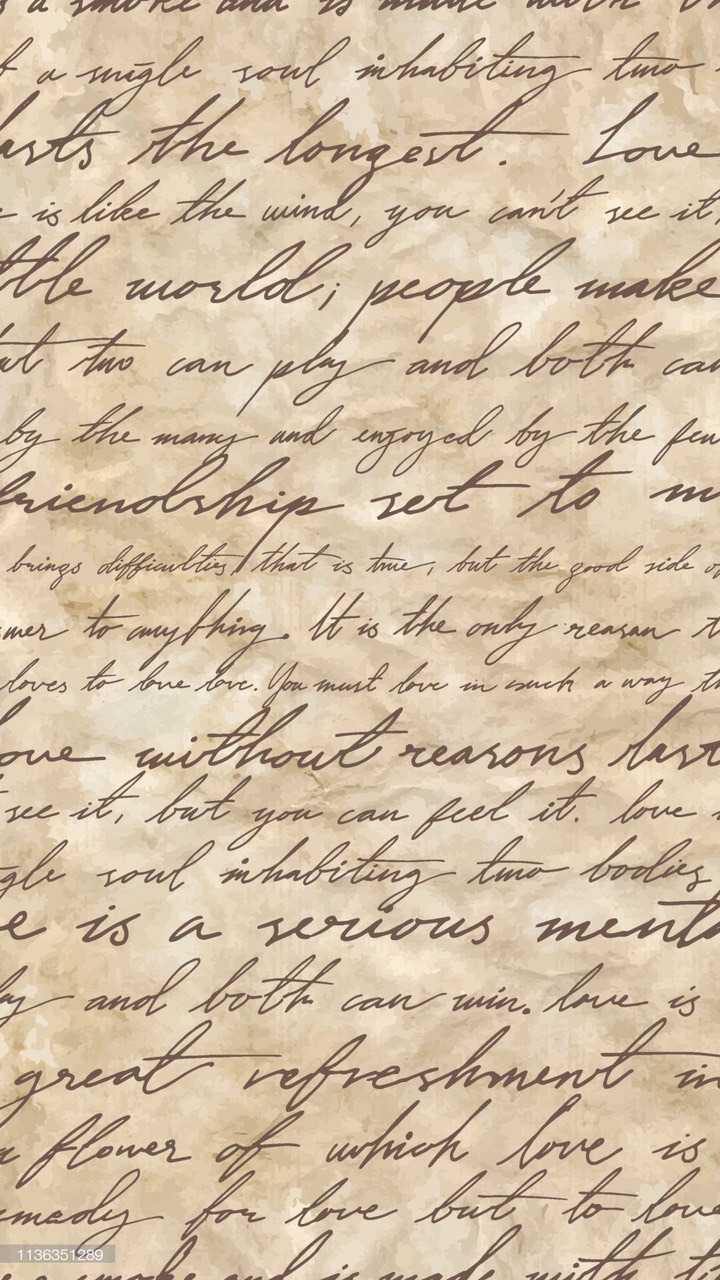 a smoke and is made with
a single soul inhabiting two
lasts the longest. Love
is like the wind, you can't see it,
little world; people make
but two can play and both can
by the many and enjoyed by the few
friendship set to
brings difficulties, that is true, but the good side of
answer to anything. It is the only reason
loves to love love. You must love in such a way
love without reasons last
see it, but you can feel it. love
soul inhabiting two bodies
is a serious mental
play and both can win. love is
great refreshment in
a flower of which love is
remedy for love but to love
a smoke and is made with
1136351289